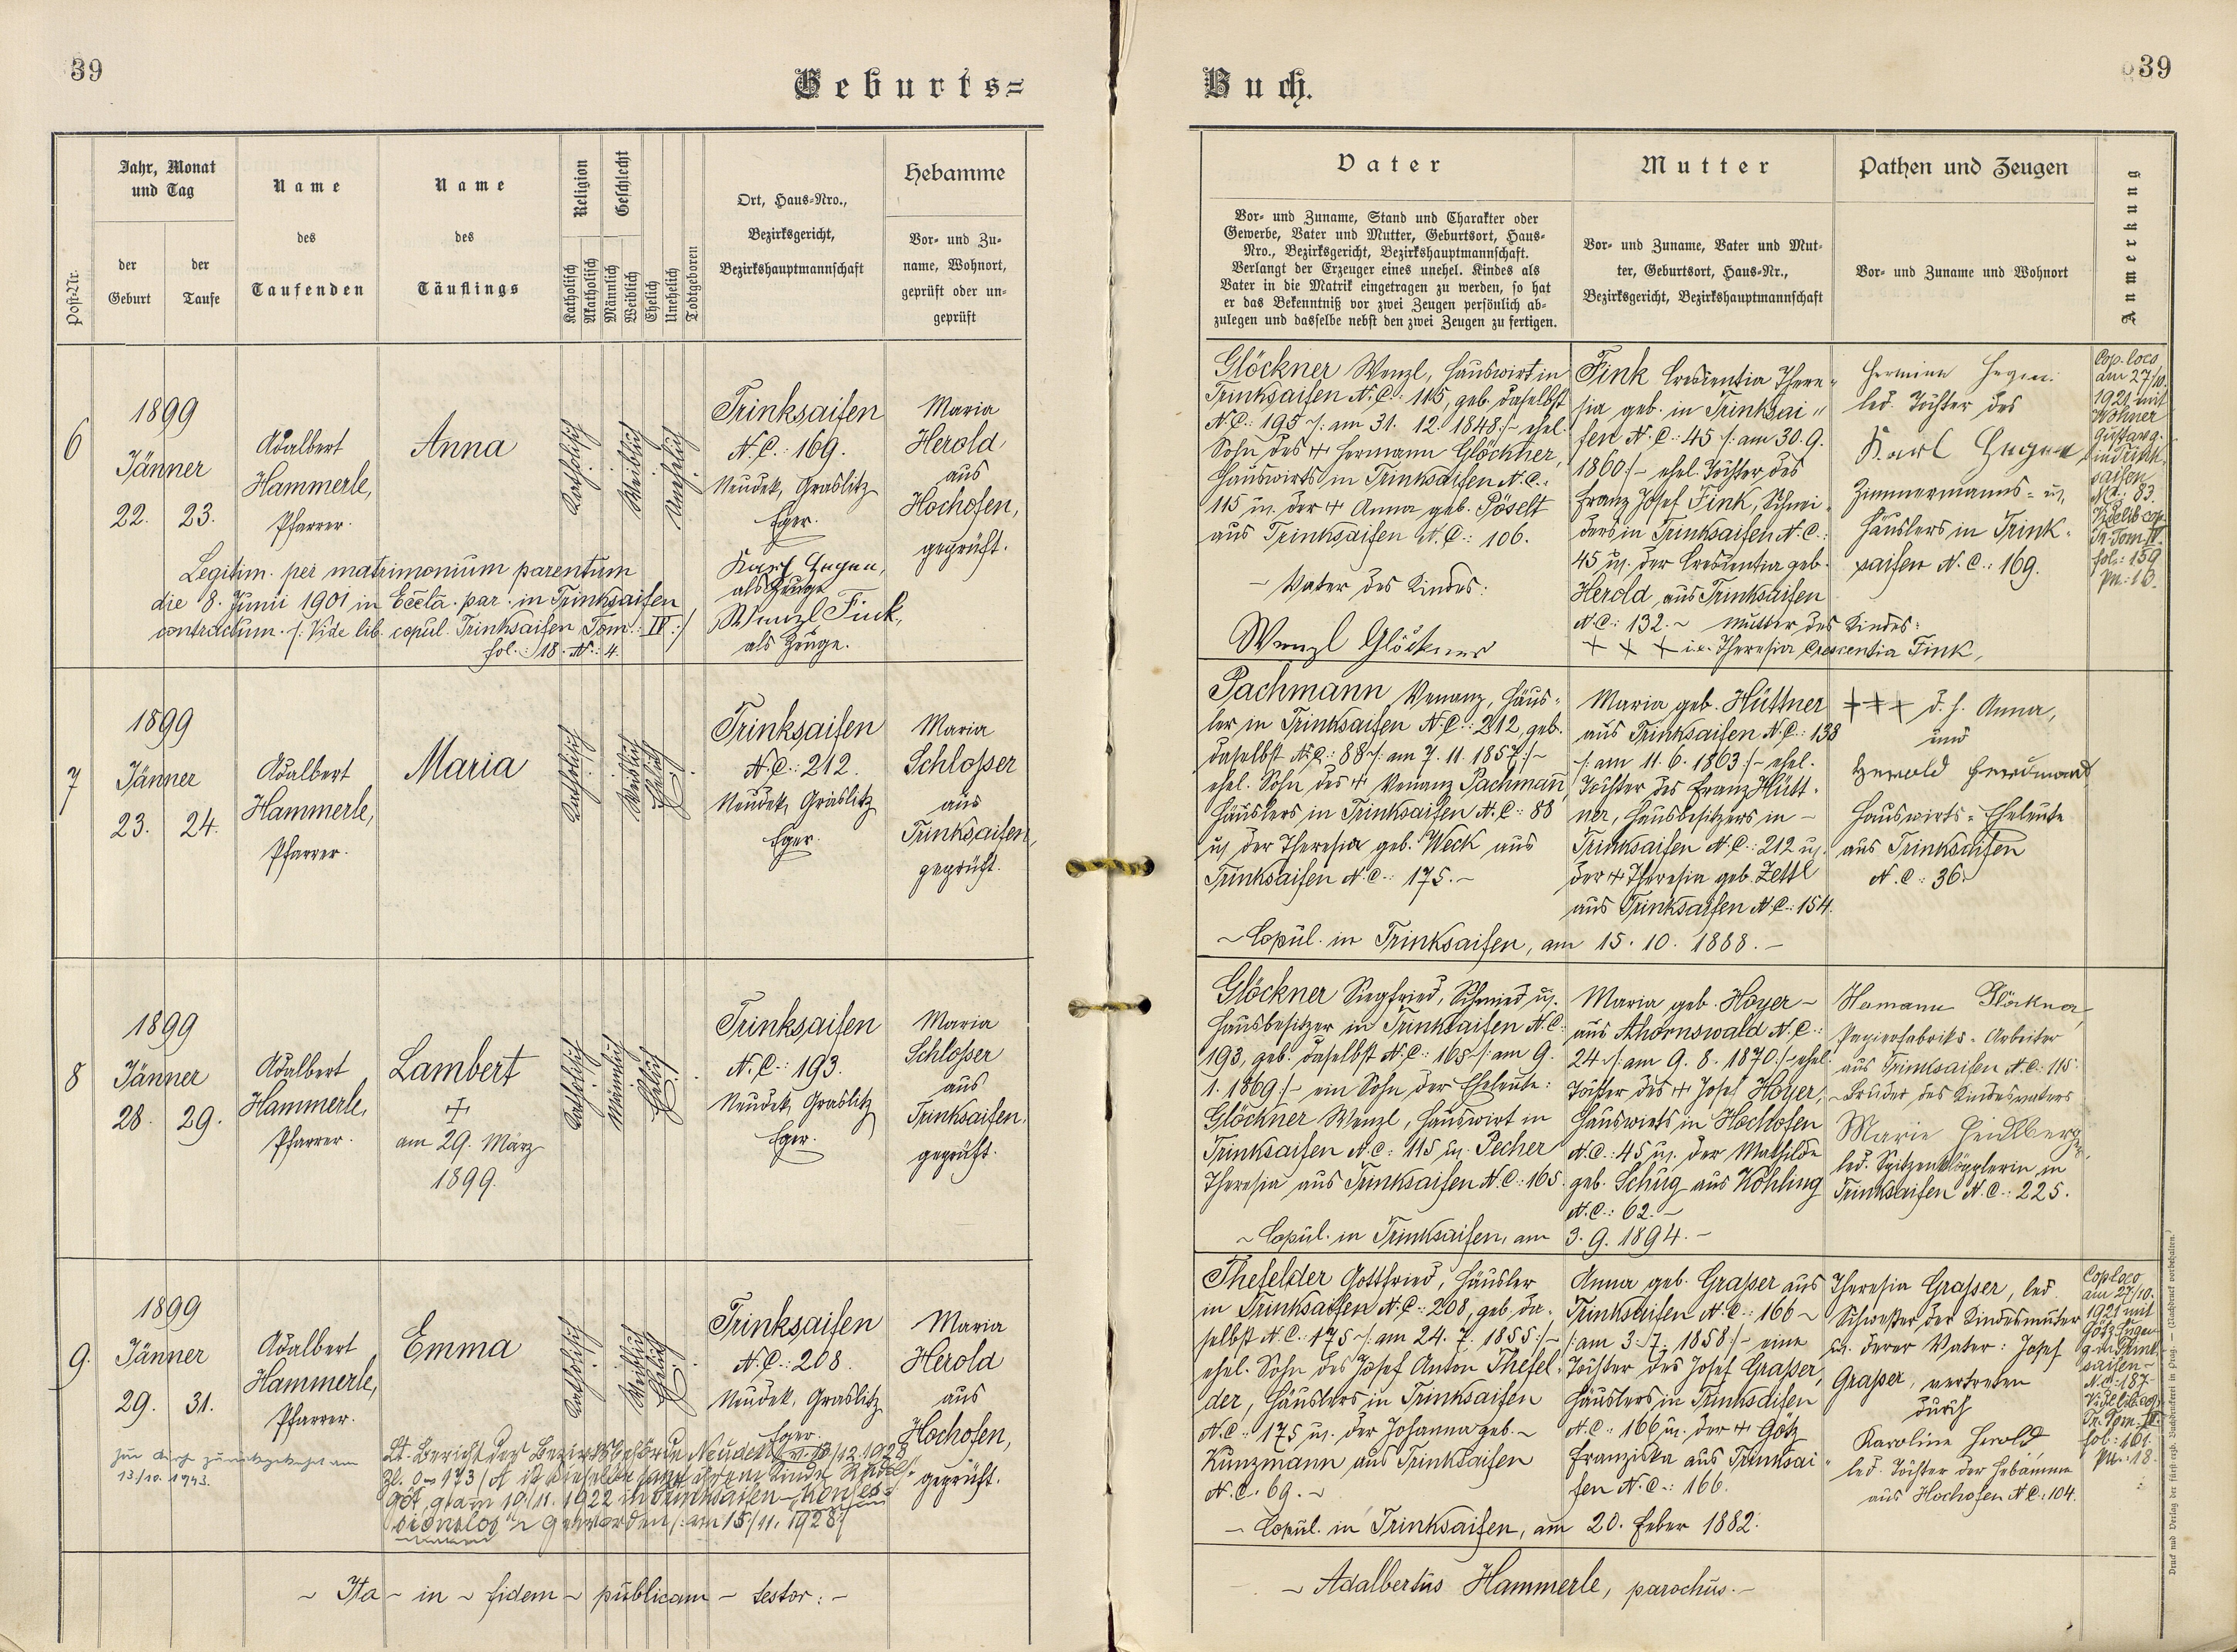 39
Geburts=
Jahr, Monat
und Tag
der
Geburt
der
Taufe
Post-Nr.
Name
des
Taufenden
Name
des
Täuflings
Religion
Katholisch
Akatholisch
Geschlecht
Männlich
Weiblich
Ehelich
Unehelich
Todtgeboren
Ort, Haus-Nro.,
Bezirksgericht,
Bezirkshauptmannschaft
Hebamme
Vor- und Zu-
name, Wohnort,
geprüft oder un-
geprüft
6
1899
Jänner
22. 23.
Adalbert
Hammerle,
Pfarrer.
Anna
Katholisch
Weiblich
Unehelich
Trinksaifen
N.C.: 169.
Neudek, Graslitz
Eger.
Maria
Herold
aus
Hochofen,
geprüft.
Legitim. per matrimonium parentum
die 8. Junii 1901 in Eccla. par. in Trinksaifen
contractum. /: Vide lib. copul. Trinksaifen Tom.: IV :/
fol.: 18. N.: 4.
Karl
als Zeuge
Wenzl Fink,
als Zeuge.
7
1899
Jänner
23. 24.
Adalbert
Hammerle,
Pfarrer.
Maria
Katholisch
Weiblich
Ehelich
Trinksaifen
N.C.: 212.
Neudek, Graslitz
Eger.
Maria
Schlosser
aus
Trinksaifen,
geprüft.
8
1899
Jänner
28. 29.
Adalbert
Hammerle,
Pfarrer.
Lambert
+
am 29. März
1899.
Katholisch
Männlich
Ehelich
Trinksaifen
N.C.: 193.
Neudek, Graslitz
Eger.
Maria
Schlosser
aus
Trinksaifen,
geprüft.
9.
1899
Jänner
29. 31.
Adalbert
Hammerle,
Pfarrer.
Emma
Katholisch
Weiblich
Ehelich
Trinksaifen
N.C.: 208.
Neudek, Graslitz
Eger.
Maria
Herold
aus
Hochofen,
geprüft.
zurückgekehrt am
13/10. 1943.
Lt. Bericht der Bezirksbehörde Neudek
am 10./11. 1922 in Trinksaifen
geworden /: am 15/11. 1928 :/
~ Ita ~ in ~ fidem ~ publicam ~ testor: ~
Buch.
39
Vater
Vor- und Zuname, Stand und Charakter oder
Gewerbe, Vater und Mutter, Geburtsort, Haus-
Nro., Bezirksgericht, Bezirkshauptmannschaft.
Verlangt der Erzeuger eines unehel. Kindes als
Vater in die Matrik eingetragen zu werden, so hat
er das Bekenntniß vor zwei Zeugen persönlich ab-
zulegen und dasselbe nebst den zwei Zeugen zu fertigen.
Mutter
Vor- und Zuname, Vater und Mut-
ter, Geburtsort, Haus-Nr.,
Bezirksgericht, Bezirkshauptmannschaft
Pathen und Zeugen
Vor- und Zuname und Wohnort
Anmerkung
Glöckner Wenzl, Hauswirt in
Trinksaifen N.C.: 115, geb. daselbst
N.C.: 195 /: am 31. 12. 1848 :/ ehel.
Sohn des + Hermann Glöckner,
Hauswirts in Trinksaifen N.C.:
115 u. der + Anna geb. Pöselt
aus Trinksaifen N.C.: 106.
~ Vater des Kindes:
Wenzl Glöckner
Fink Crescentia There-
sia geb. in Trinksai-
fen N.C.: 45 /: am 30. 9.
1860 :/ ehel. Tochter des
Franz Josef Fink, Schnei-
ders in Trinksaifen N.C.:
45 u. der Crescentia geb.
Herold aus Trinksaifen
N.C.: 132. ~ Mutter des Kindes:
+ + + i.e. Theresia Crescentia Fink,
led. Tochter des
Karl
Zimmermanns- u.
Häuslers in Trink-
saifen N.C.: 169.
Cop. loco
am 27/10.
1921 mit
Gustav
in Trink-
saifen
N.C.: 83.
Vide lib. cop.
Tr. Tom. IV.
fol.: 159
pn.: 13.
Pachmann Venanz, Häus-
ler in Trinksaifen N.C.: 212, geb.
daselbst N.C.: 88 /: am 7. 11. 1857 :/
ehel. Sohn des + Venanz Pachmann,
Häuslers in Trinksaifen N.C.: 88
u. der Theresia geb. Weck aus
Trinksaifen N.C.: 175. ~
Maria geb. Hüttner
aus Trinksaifen N.C.: 138
/: am 11. 6. 1863 :/ ehel.
Tochter des Franz Hütt-
ner, Hausbesitzers in ~
Trinksaifen N.C.: 212 u.
der + Theresia geb. Zettl
aus Trinksaifen N.C.: 154.
~ Copul. in Trinksaifen, am 15. 10. 1888. ~
+ + + d. h. Anna,
und
Herold Ferdinand
Hauswirts-Eheleute
aus Trinksaifen
N.C.: 36.
Glöckner Siegfried, Schmied u.
Hausbesitzer in Trinksaifen N.C.:
193, geb. daselbst N.C.: 165 /: am 9.
1. 1869 :/ ein Sohn der Eheleute:
Glöckner Wenzl, Hauswirt in
Trinksaifen N.C.: 115 u. Pecher
Theresia aus Trinksaifen N.C.: 165.
Maria geb. Hoyer ~
aus Ahornswald N.C.:
24 /: am 9. 8. 1870 :/ ehel.
Tochter des + Josef Hoyer,
Hauswirts in Hochofen
N.C.: 45 u. der Mathilde
geb. Schug aus Kohling
N.C.: 62. ~
~ Copul. in Trinksaifen, am 3. 9. 1894. ~
Hermann Glöckner,
Papierfabriks-Arbeiter
aus Trinksaifen N.C.: 115.
~ Bruder des Kindesvaters
Marie
led. Spitzenklöpplerin in
Trinksaifen N.C.: 225.
Thefelder Gottfried, Häusler
in Trinksaifen N.C.: 208, geb. da-
selbst N.C.: 175 /: am 24. 7. 1855 :/
ehel. Sohn des Josef Anton Thefel-
der, Häuslers in Trinksaifen
N.C.: 175 u. der Johanna geb. ~
Kunzmann aus Trinksaifen
N.C. 69. ~
Anna geb. Grasser aus
Trinksaifen N.C.: 166 ~
/: am 3. 7. 1858 :/ eine
Tochter des Josef Grasser,
Häuslers in Trinksaifen
N.C.: 166 u. der + Götz
Franziska aus Trinksai-
fen N.C.: 166.
~ Copul. in Trinksaifen, am 20. Feber 1882.
Theresia Grasser, led.
Schwester der Kindesmutter
u. derer Vater: Josef
Grasser, vertreten
durch
Karoline Herold,
led. Tochter der Hebamme
aus Hochofen N.C.: 104.
Cop. loco
am 27/10.
1921 mit
Götz
saifen ~
N.C.: 187.
Vide lib. cop.
Tr. Tom. IV.
fol.: 161.
pn.: 18.
~ Adalbertus Hammerle, parochus. ~
Druck und Verlag der fürst-erzb. Buchdruckerei in Prag. — (Nachdruck vorbehalten.)